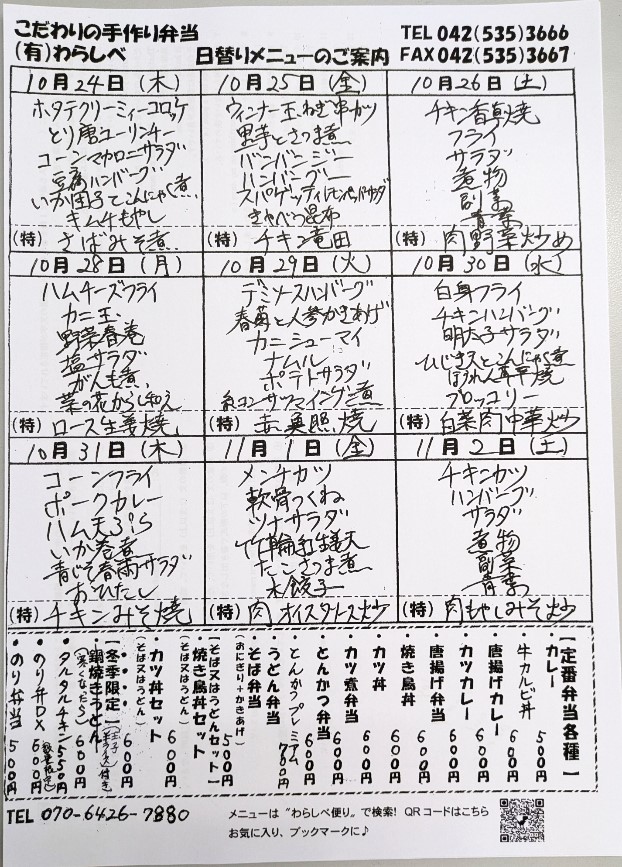 こだわりの手作り弁当
(有)わらしべ
日替りメニューのご案内
TEL 042(535)3666
FAX 042(535)3667
10月24日(木)
ホタテクリーミィーコロッケ
とり唐ユーリンチー
コーンマカロニサラダ
豆腐ハンバーグ
いか団子とこんにゃく煮
キムチもやし
(特) さばみそ煮
10月25日(金)
ウィンナー玉ねぎ串カツ
里芋とさつま煮
バンバンジー
ハンバーグ
スパゲッティ
きゃべつ昆布
(特) チキン竜田
10月26日(土)
チキン香草焼
フライ
サラダ
煮物
副菜
青菜
(特) 肉野菜炒め
10月28日(月)
ハムチーズフライ
カニ玉
野菜春巻
塩サラダ
がんも煮
菜の花からし和え
(特) ロース生姜焼
10月29日(火)
デミソースハンバーグ
春菊と人参かきあげ
カニシューマイ
ナムル
ポテトサラダ
糸コンサツマインゲン煮
(特) 赤魚照焼
10月30日(水)
白身フライ
チキンハンバーグ
明太子サラダ
ひじき天とこんにゃく煮
ほうれん草平焼
ブロッコリー
(特) 白菜肉中華炒
10月31日(木)
コーンフライ
ポークカレー
ハム天
いか巻煮
青じそ春雨サラダ
おひたし
(特) チキンみそ焼
11月1日(金)
メンチカツ
軟骨つくね
ツナサラダ
竹輪紅生姜天
たこさつま煮
水餃子
(特) 肉オイスターソース炒
11月2日(土)
チキンカツ
ハンバーグ
サラダ
煮物
副菜
青菜
(特) 肉もやしみそ炒
【定番弁当各種】
・カレー 500円
・牛カルビ丼 600円
・唐揚げカレー 600円
・カツカレー 600円
・唐揚げ弁当 600円
・焼き鳥丼 600円
・カツ丼 600円
・カツ煮弁当 600円
・とんかつ弁当 600円
・とんかつプレミアム 700円
・うどん弁当
・そば弁当 500円
(おにぎり+かきあげ)
【そば又はうどんセット】
・焼き鳥丼セット 600円
(そば又はうどん)
・カツ丼セット 600円
(そば又はうどん)
【冬季限定】(玉子・半ライス付き)
・鍋焼きうどん 600円
(寒くなったら)
・タルタルチキン 550円
・のり弁DX 600円(数量限定)
・のり弁当 500円
TEL 070-6426-7880
メニューは“わらしべ便り”で検索! QRコードはこちら
お気に入り、ブックマークに♪